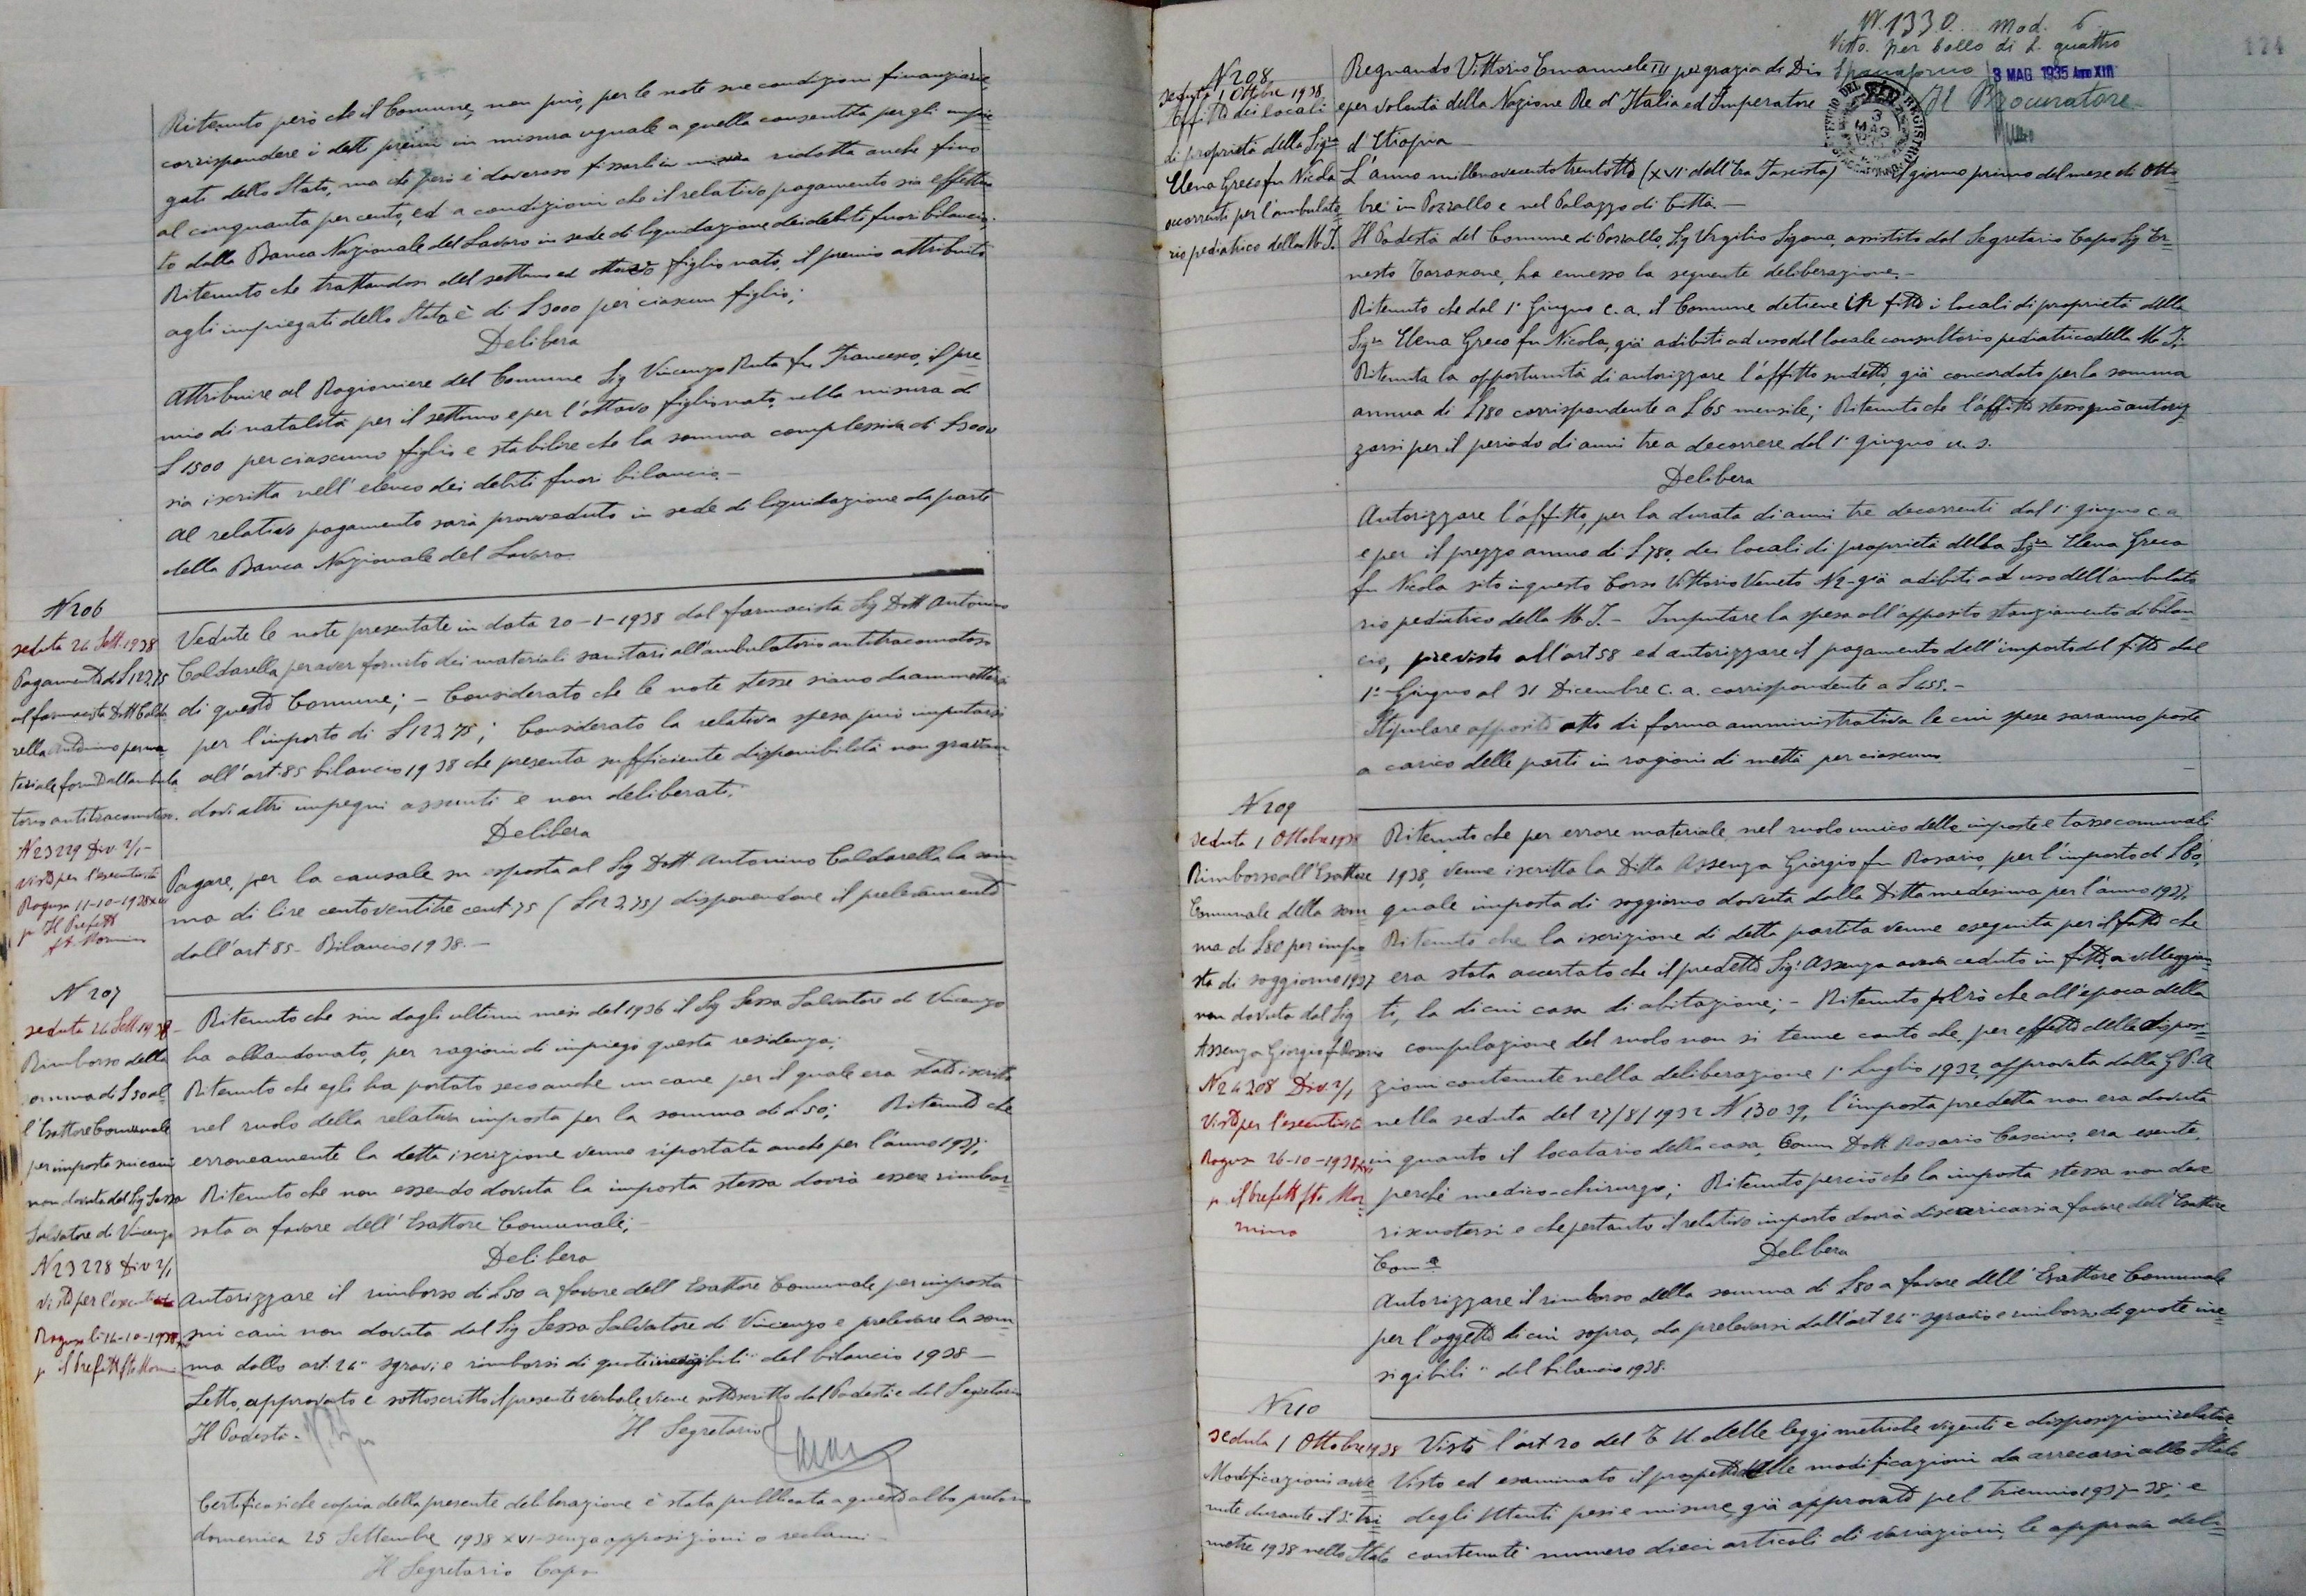 Ritenuto però che il Comune, non può, per le note sue condizioni finanziarie,
corrispondere i detti premi in misura uguale a quella consentita per gli impie=
gati dello Stato, ma che però è doveroso fissarli in misura ridotta anche fino
al cinquanta per cento, ed a condizioni che il relativo pagamento sia effettua
to dalla Banca Nazionale del Lavoro in sede di liquidazione dei debiti fuori bilancio;
Ritenuto che trattandosi del settimo ed ottavo figlio nato, il premio attribuito
agli impiegati dello Stato è di £ 3000 per ciascun figlio;
Delibera
Attribuire al Ragioniere del Comune Sig Vincenzo Ruta fu Francesco, il pre=
mio di natalità per il settimo e per l'ottavo figlio nato, nella misura di
£ 1500 per ciascuno figlio e stabilire che la somma complessiva di £ 3000
sia iscritta nell'elenco dei debiti fuori bilancio.-
Al relativo pagamento sarà provveduto in sede di liquidazione da parte
della Banca Nazionale del Lavoro.
N 206
seduta 24 Sett. 1938
Pagamento di £ 123,75
al farmacista Dott Calda
rella Antonino per ma
teriale fornito all'ambula
torio antitracomatoso.
N 23229 Div. 2/1-
Visto per l'esecutività
Ragusa 11-10-1938 XVI
p. Il Prefetto
Vedute le note presentate in data 20-1-1938 dal farmacista Sig Dott Antonino
Caldarella per aver fornito dei materiali sanitari all'ambulatorio antitracomatoso
di questo Comune; - Considerato che le note stesse siano da ammettersi
per l'importo di £ 123,75; Considerato la relativa spesa può imputarsi
all'art. 85 bilancio 1938 che presenta sufficiente disponibilità non gravan
dovi altri impegni assunti e non deliberati.
Delibera
Pagare, per la causale su esposta al Sig Dott. Antonino Caldarella la som
ma di lire centoventitre cent. 75 (£ 123,75) disponendone il prelevamento
dall'art. 85 - Bilancio 1938.-
N 207
seduta 24 Sett. 1938 -
Rimborso della
somma di £ 50 al=
l'Esattore Comunale
per imposta sui cani
non dovuta dal Sig Sessa
Salvatore di Vincenzo
N 23228 Div 2/1
Visto per l'esecutività
Ragusa li 14-10-1938
p. il Prefetto
Ritenuto che sin dagli ultimi mesi del 1936 il Sig Sessa Salvatore di Vincenzo
ha abbandonato, per ragioni di impiego questa residenza;
Ritenuto che egli ha portato seco anche un cane per il quale era stato iscritto
nel ruolo della relativa imposta per la somma di £ 50; Ritenuto che
erroneamente la detta iscrizione venne riportata anche per l'anno 1937;
Ritenuto che non essendo dovuta la imposta stessa dovrà essere rimbor=
sata a favore dell'Esattore Comunale;-
Delibera
Autorizzare il rimborso di £ 50 a favore dell'Esattore Comunale per imposta
sui cani non dovuta dal Sig Sessa Salvatore di Vincenzo e prelevare la som=
ma dallo art. 24 " sgravi e rimborsi di quote inesigibili " del bilancio 1938 -
Letto, approvato e sottoscritto il presente verbale viene sottoscritto dal Podestà e dal Segretario
Il Podestà Il Segretario
Certificasi che copia della presente deliberazione è stata pubblicata a questo albo pretorio
domenica 25 Settembre 1938 XVI senza opposizioni o reclami -
Il Segretario Capo
N. 1330 Mod. 6
Visto per bollo di £. quattro
3 MAG 1935 Anno XIII
Il Procuratore
124
N 208
seduta 1 Ottbre 1938
Affitto dei locali
di proprietà della Sigra
Elena Greco fu Nicola
occorrenti per l'ambulato=
rio pediatrico della M. I.
Regnando Vittorio Emanuele III per grazia di Dio
e per volontà della Nazione Re d'Italia ed Imperatore
d'Etiopia
L'anno millenovecentotrentotto (XVI° dell'Era Fascista) il giorno primo del mese di Otto
bre in Pozzallo e nel Palazzo di Città.-
Il Podestà del Comune di Pozzallo, Sig Virgilio Sigona, assistito dal Segretario Capo Sig Er=
nesto Tarascone, ha emesso la seguente deliberazione.-
Ritenuto che dal 1° Giugno c. a. il Comune detiene in fitto i locali di proprietà della
Sigra Elena Greco fu Nicola, già adibiti ad uso del locale consultorio pediatrico della M. I.
Ritenuta la opportunità di autorizzare l'affitto sudetto, già concordato per la somma
annua di £ 780 corrispondente a £ 65 mensile; Ritenuto che l'affitto stesso può autoriz
zarsi per il periodo di anni tre a decorrere dal 1° giugno u. s.
Delibera
Autorizzare l'affitto, per la durata di anni tre decorrenti dal 1° giugno c. a
e per il prezzo annuo di £ 780, dei locali di proprietà della Sigra Elena Greco
fu Nicola sito in questo Corso Vittorio Veneto N 2 - già adibiti ad uso dell'ambulato
rio pediatrico della M. I. - Imputare la spesa all'apposito stanziamento di bilan
cio, previsto all'art 58 ed autorizzare il pagamento dell'importo del fitto dal
1° Giugno al 31 Dicembre c. a. corrispondente a £ 455.-
Stipulare apposito atto di forma amministrativa le cui spese saranno poste
a carico delle parti in ragioni di metà per ciascuno
N 209
seduta 1 Ottobre 1938
Rimborso all'Esattore
Comunale della som
ma di £ 80 per impo
sta di soggiorno 1937
non dovuta dal Sig
Assenza Giorgio fu Rosario
N 24308 Div. 2/1
Visto per l'esecutività
Ragusa 26-10-1938 XVI
p. il Prefetto fto Mor=
mino
Ritenuto che per errore materiale nel ruolo unico delle imposte e tasse comunali
1938, venne iscritta la Ditta Assenza Giorgio fu Rosario, per l'importo di £ 80,
quale imposta di soggiorno dovuta dalla Ditta medesima per l'anno 1937;
Ritenuto che la iscrizione di detta partita venne eseguita per il fatto che
era stata accertato che il predetto Sig. Assenza aveva ceduto in fitto, a villeggian=
ti, la di cui casa di abitazione; - Ritenuto però che all'epoca della
compilazione del ruolo non si tenne conto che, per effetto delle disposi=
zioni contenute nella deliberazione 1° Luglio 1932, approvata dalla G.P.A
nella seduta del 27/8/1932 N. 13039, l'imposta predetta non era dovuta
in quanto il locatario della casa, Comm Dott Rosario Cascino, era esente,
perché medico-chirurgo; Ritenuto perciò che la imposta stessa non deve
riscuotersi e che pertanto il relativo importo dovrà discaricarsi a favore dell'Esattore
Com.e
Delibera
Autorizzare il rimborso della somma di £ 80 a favore dell'Esattore Comunale
per l'oggetto di cui sopra, da prelevarsi dall'art 24 " sgravi e rimborso di quote ine=
sigibili " del bilancio 1938.
N 210
seduta 1 Ottobre 1938
Modificazioni avve=
nute durante il 2° tri=
mestre 1938 nello Stato
Visto l'art 20 del T. U. delle leggi metriche vigenti e disposizioni relative
Visto ed esaminato il prospetto delle modificazioni da arrecarsi allo Stato
degli Utenti pesi e misure già approvato pel triennio 1937-38; e
contenente numero dieci articoli di variazioni, le approva deli=